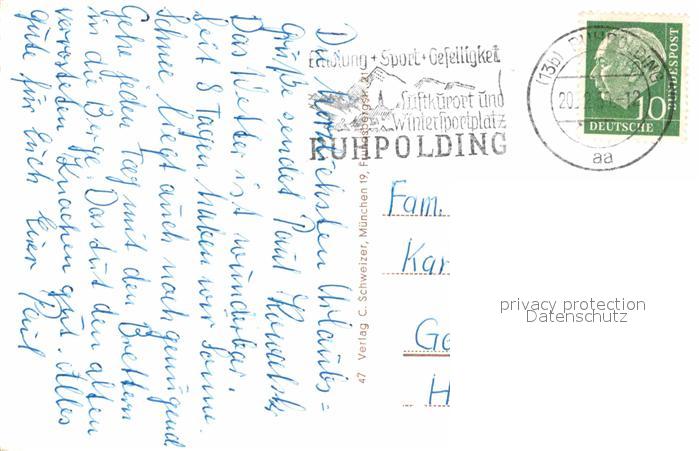 Die herzlichsten Urlaubs=
grüße sendet Paul Kowalski
Das Wetter ist wunderbar.
Seit 8 Tagen haben wir Sonne.
Schnee liegt auch noch genügend
Gehe jeden Tag mit den Brettern
in die Berge. Das tut den alten
verrosteten Knochen gut. Alles
gute für Euch Euer Paul
Erholung + Sport + Geselligkeit
Luftkurort und
Wintersportplatz
RUHPOLDING
(13b) RUHPOLDING
20.
12
aa
10
DEUTSCHE
BUNDESPOST
47 Verlag C. Schweizer, München 19,
Fam.
Kar
Ge
H
privacy protection
Datenschutz